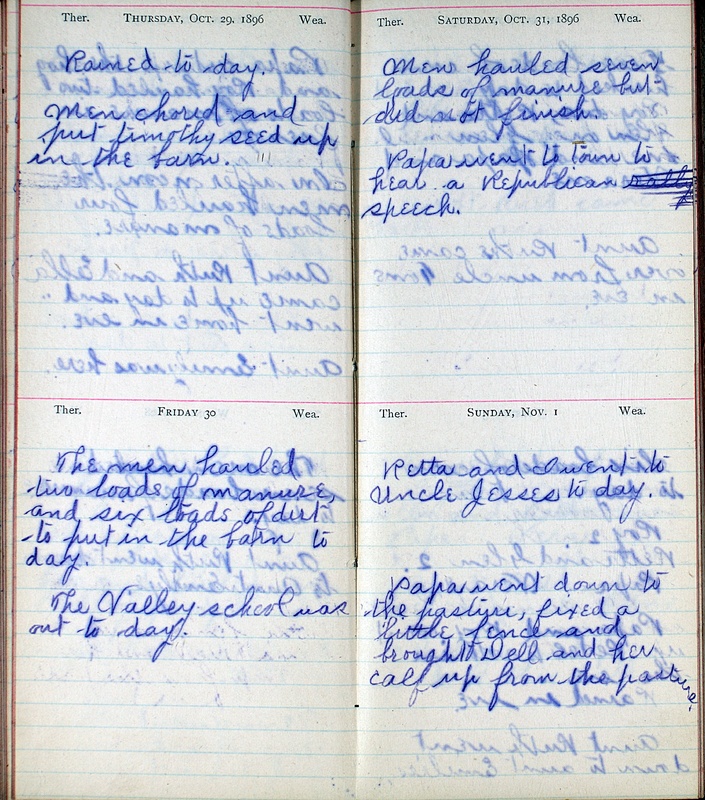 Ther. THURSDAY, OCT. 29, 1896 Wea.
Rained to day.
Men chored and
put timothy seed up
in the barn.
Ther. FRIDAY 30 Wea.
The men hauled
two loads of manure,
and six loads of dirt
to put in the barn to
day.
The Valley school was
out to day.
Ther. SATURDAY, OCT. 31, 1896 Wea.
Men hauled seven
loads of manure but
did not finish.
Papa went to Town to
hear a Republican rally
speech.
Ther. SUNDAY, NOV. 1 Wea.
Retta and I went to
Uncle Jesses to day.
Papa went down to
the pasture, fixed a
little fence and
brought Dell and her
calf up from the pasture.